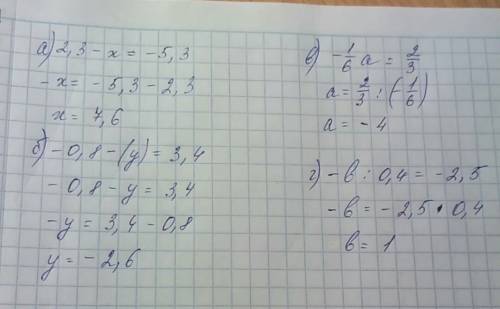 а) 2,3 - x = -5,3
-x = -5,3 - 2,3
x = 7,6
б) -0,8 - (y) = 3,4
-0,8 - y = 3,4
-y = 3,4 - 0,8
y = -2,6
в) -1/6 a = 2/3
a = 2/3 : (-1/6)
a = -4
г) -в : 0,4 = -2,5
-в = -2,5 • 0,4
в = 1